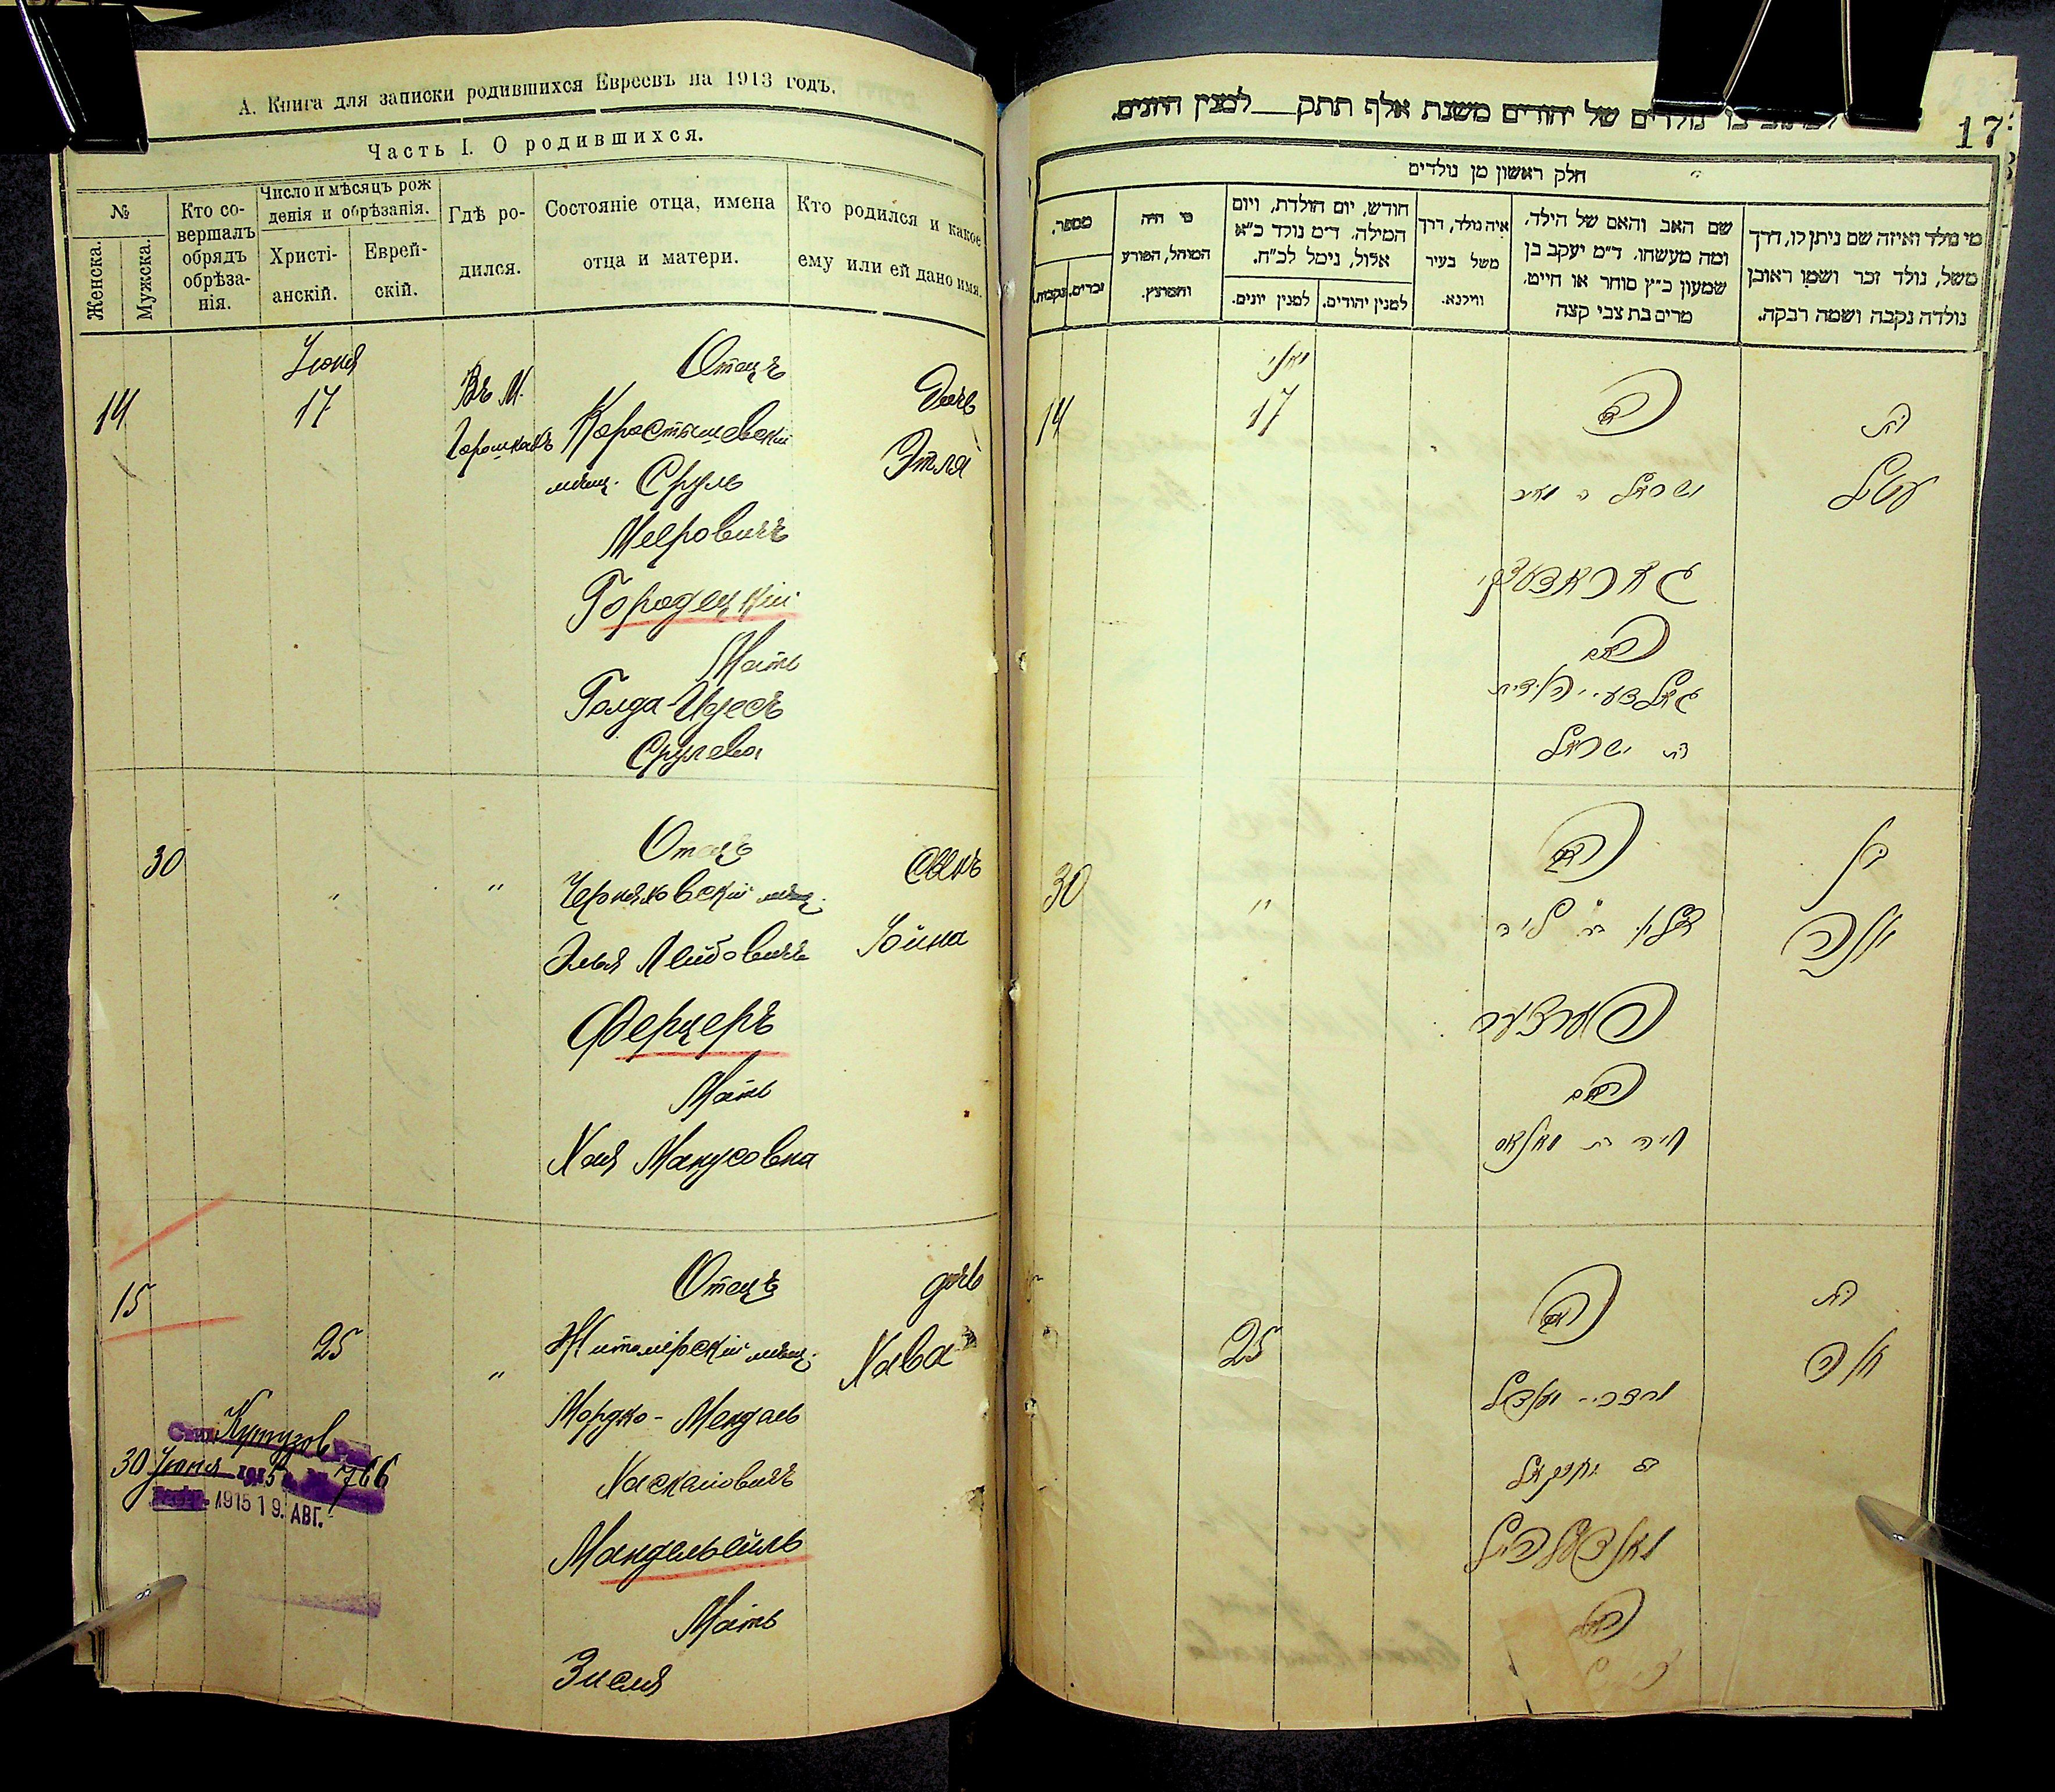 А. Книга для записки родившихся Евреевъ на 1913 годъ.
Часть I. О родившихся.
№
Женска.
Мужска.
Кто со-
вершалъ
обрядъ
обрѣза-
нія.
Число и мѣсяцъ рож
денія и обрѣзанія.
Христі-
анскій.
Еврей-
скій.
Гдѣ ро-
дился.
Состояніе отца, имена
отца и матери.
Кто родился и какое
ему или ей дано имя.
Іюня
14
17
Въ М.
Горошкахъ
Отецъ
Коростышевскій
мѣщ. Сруль
Мееровичъ
Городецкій
Мать
Голда-Идесъ
Срулева
Дочь
Этля
30
"
"
Отецъ
Черняховскій мѣщ.
Элья Лейбовичъ
Ферцеръ
Мать
Хая Манусовна
сынъ
Іойна
15
25
"
Отецъ
Житомірскій мѣщ.
Мордко-Мендель
Хаскелевичъ
Мандельейль
Мать
Зисля
дочь
Хава
Кутузов
30 Іюня 1915 г. № 766
1915 19. АВГ.
נולדים של יהודים משנת אלף תתק למנין היונים.
17
חלק ראשון מן נולדים
מספר,
זכרים.
נקבות.
מי היה
המוהל, הפורע
והמוצץ.
חודש, יום הולדת, ויום
המילה. ד״מ נולד כ״א
אלול, נימל לכ״ח.
למנין יונים.
למנין יהודים.
איה נולד, דרך
משל בעיר
ווילנא.
שם האב והאם של הילד,
ומה מעשהו. ד״מ יעקב בן
שמעון כ״ץ סוחר או חייט,
מרים בת צבי קצה
מי נולד ואיזה שם ניתן לו, דרך
משל, נולד זכר ושמו ראובן
נולדה נקבה ושמה רבקה.
14
17
האב
ישראל ב מאיר
גאראדעצקי
האם
בת ישראל
בת
עטיל
30
"
האב
פערצער
האם
חיה בת מאנאס
בן
יונה
25
האב
מרדכי מענדיל
ב יחזקאל
האם
בת
חוה